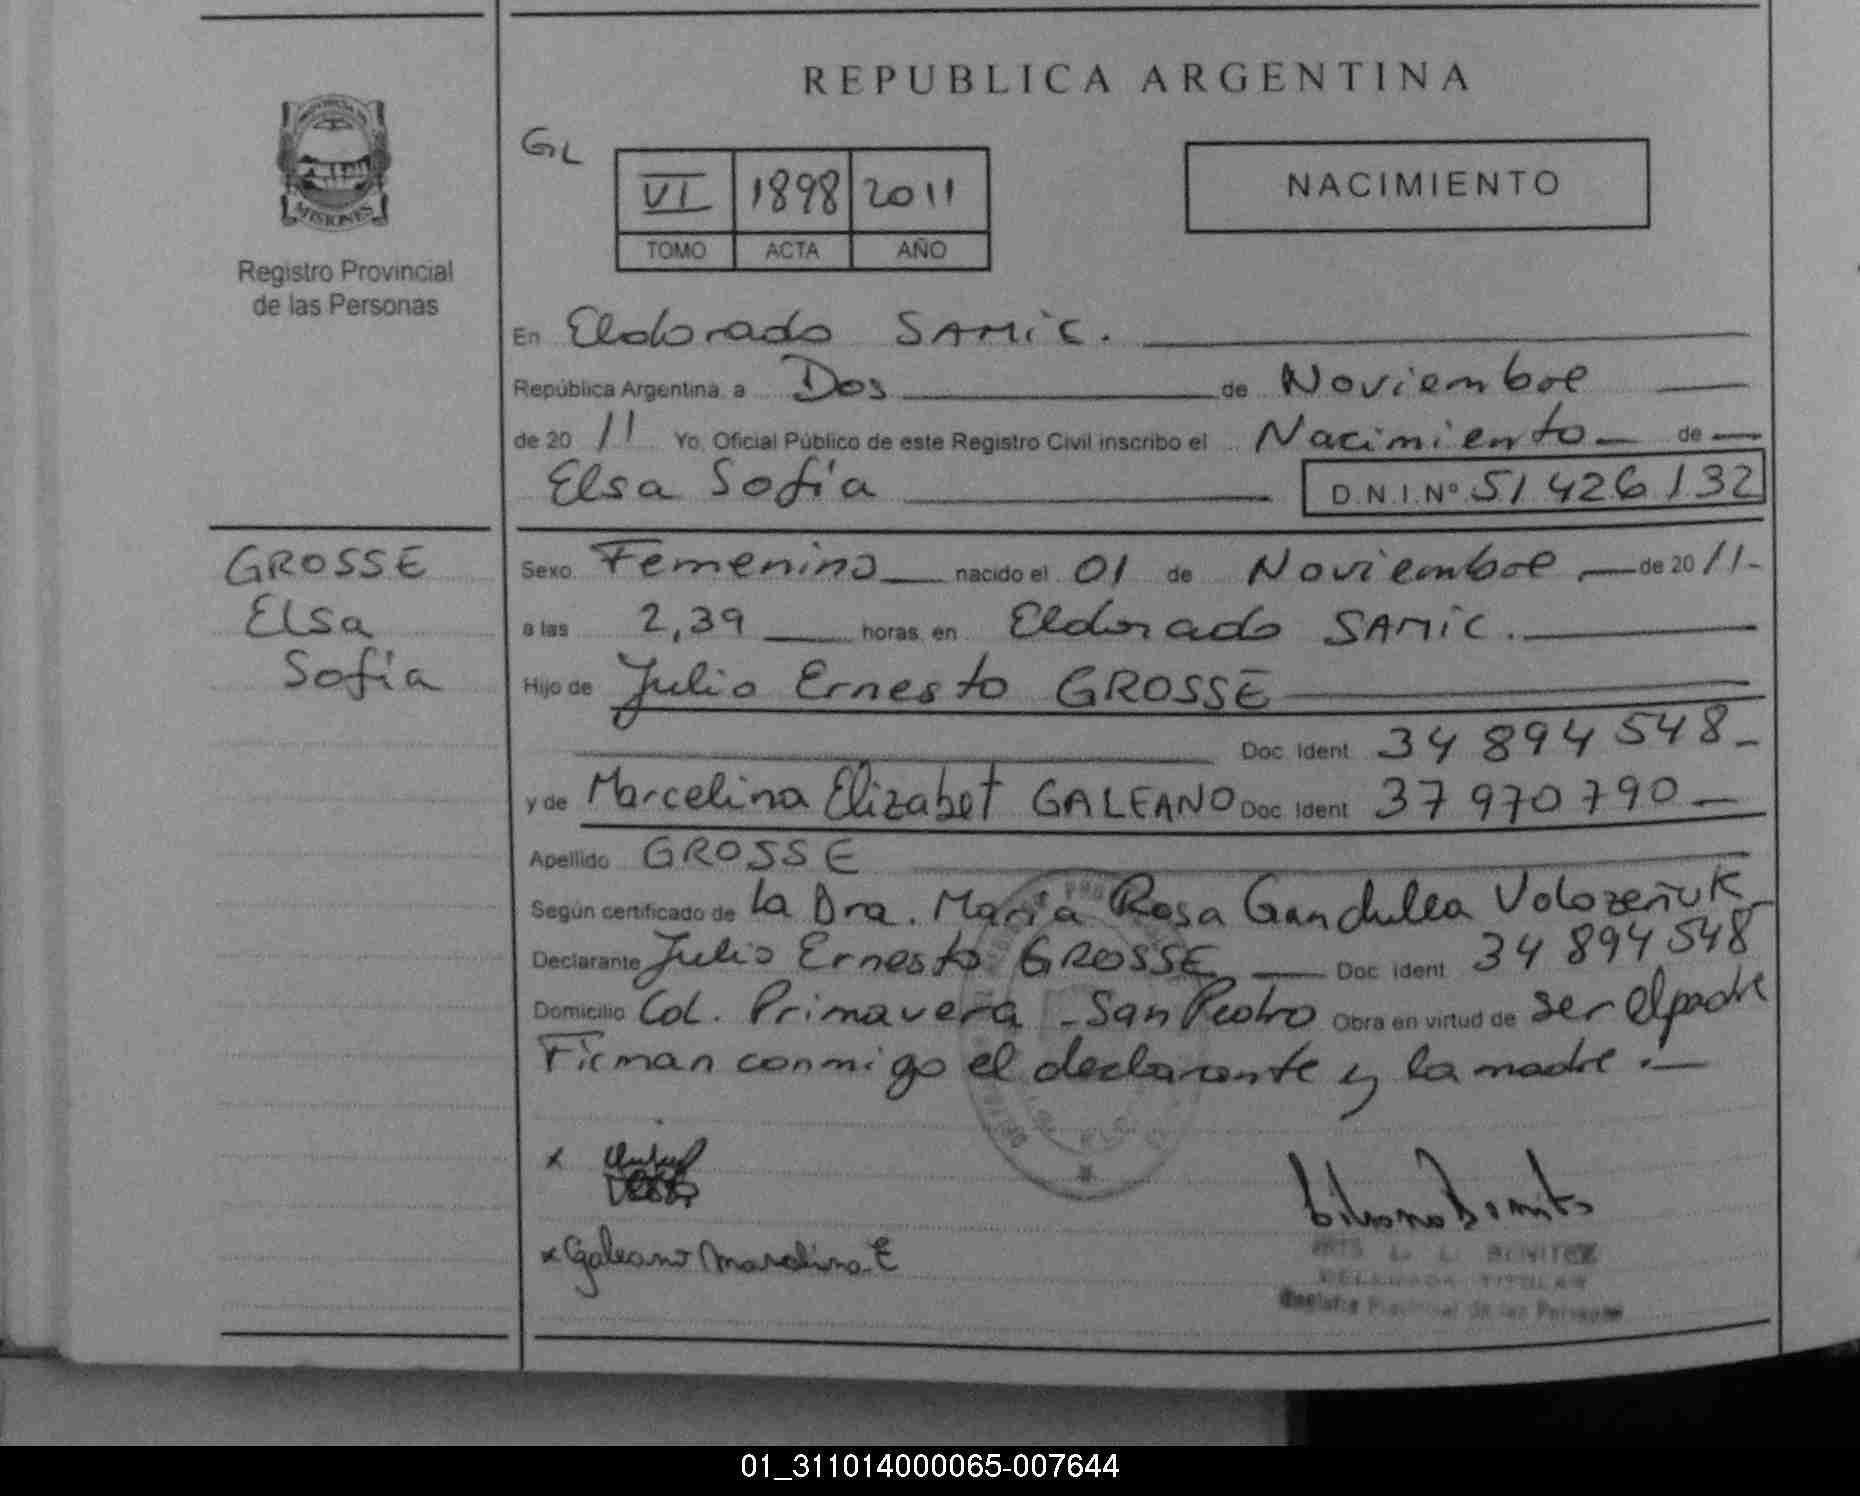 REPUBLICA ARGENTINA
PROVINCIA DE
MISIONES
Registro Provincial
de las Personas
GL
VI 1898 2011
TOMO ACTA AÑO
NACIMIENTO
En Eldorado SAMIC.
República Argentina, a Dos de Noviembre
de 2011 Yo, Oficial Público de este Registro Civil inscribo el Nacimiento de
Elsa Sofía D.N.I.Nº 51 426 132
GROSSE
Elsa
Sofía
Sexo Femenino nacido el 01 de Noviembre de 2011-
a las 2,39 horas, en Eldorado SAMIC.
Hijo de Julio Ernesto GROSSE
Doc. Ident 34 894 548-
y de Marcelina Elizabet GALEANO Doc. Ident 37 970 790-
Apellido GROSSE
Según certificado de la Dra. María Rosa Gandulla Volozeñuk
Declarante Julio Ernesto GROSSE Doc. Ident 34 894 548
Domicilio Col. Primavera - San Pedro Obra en virtud de ser el padre
Firman conmigo el declarante y la madre.-
x
x Galeano Marcelina E
L. L. BENITEZ
DELEGADA TITULAR
Registro Provincial de las Personas
01_311014000065-007644